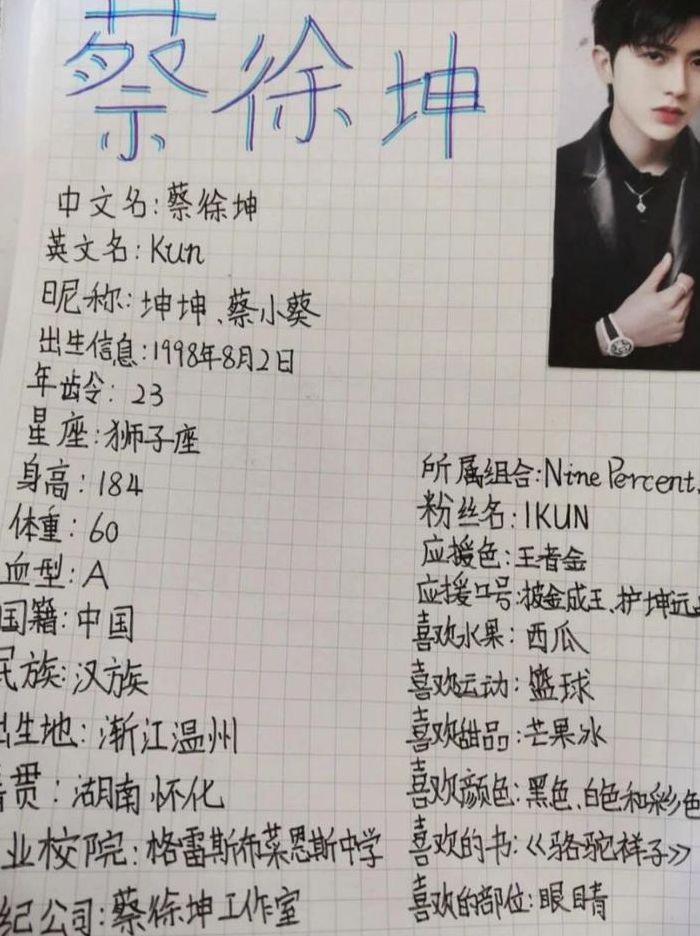 蔡徐坤
中文名:蔡徐坤
英文名:Kun
昵称:坤坤、蔡小葵
出生信息:1998年8月2日
年龄:23
星座:狮子座
身高:184
体重:60
血型:A
国籍:中国
民族:汉族
出生地:浙江温州
籍贯:湖南怀化
业校院:格雷斯布莱恩斯中学
纪公司:蔡徐坤工作室
所属组合:Nine Percent.
粉丝名:IKUN
应援色:王者金
应援口号:披金成王、护坤远
喜欢水果:西瓜
喜欢运动:篮球
喜欢甜品:芒果冰
喜欢颜色:黑色、白色和彩色
喜欢的书:《骆驼祥子》
喜欢的部位:眼睛